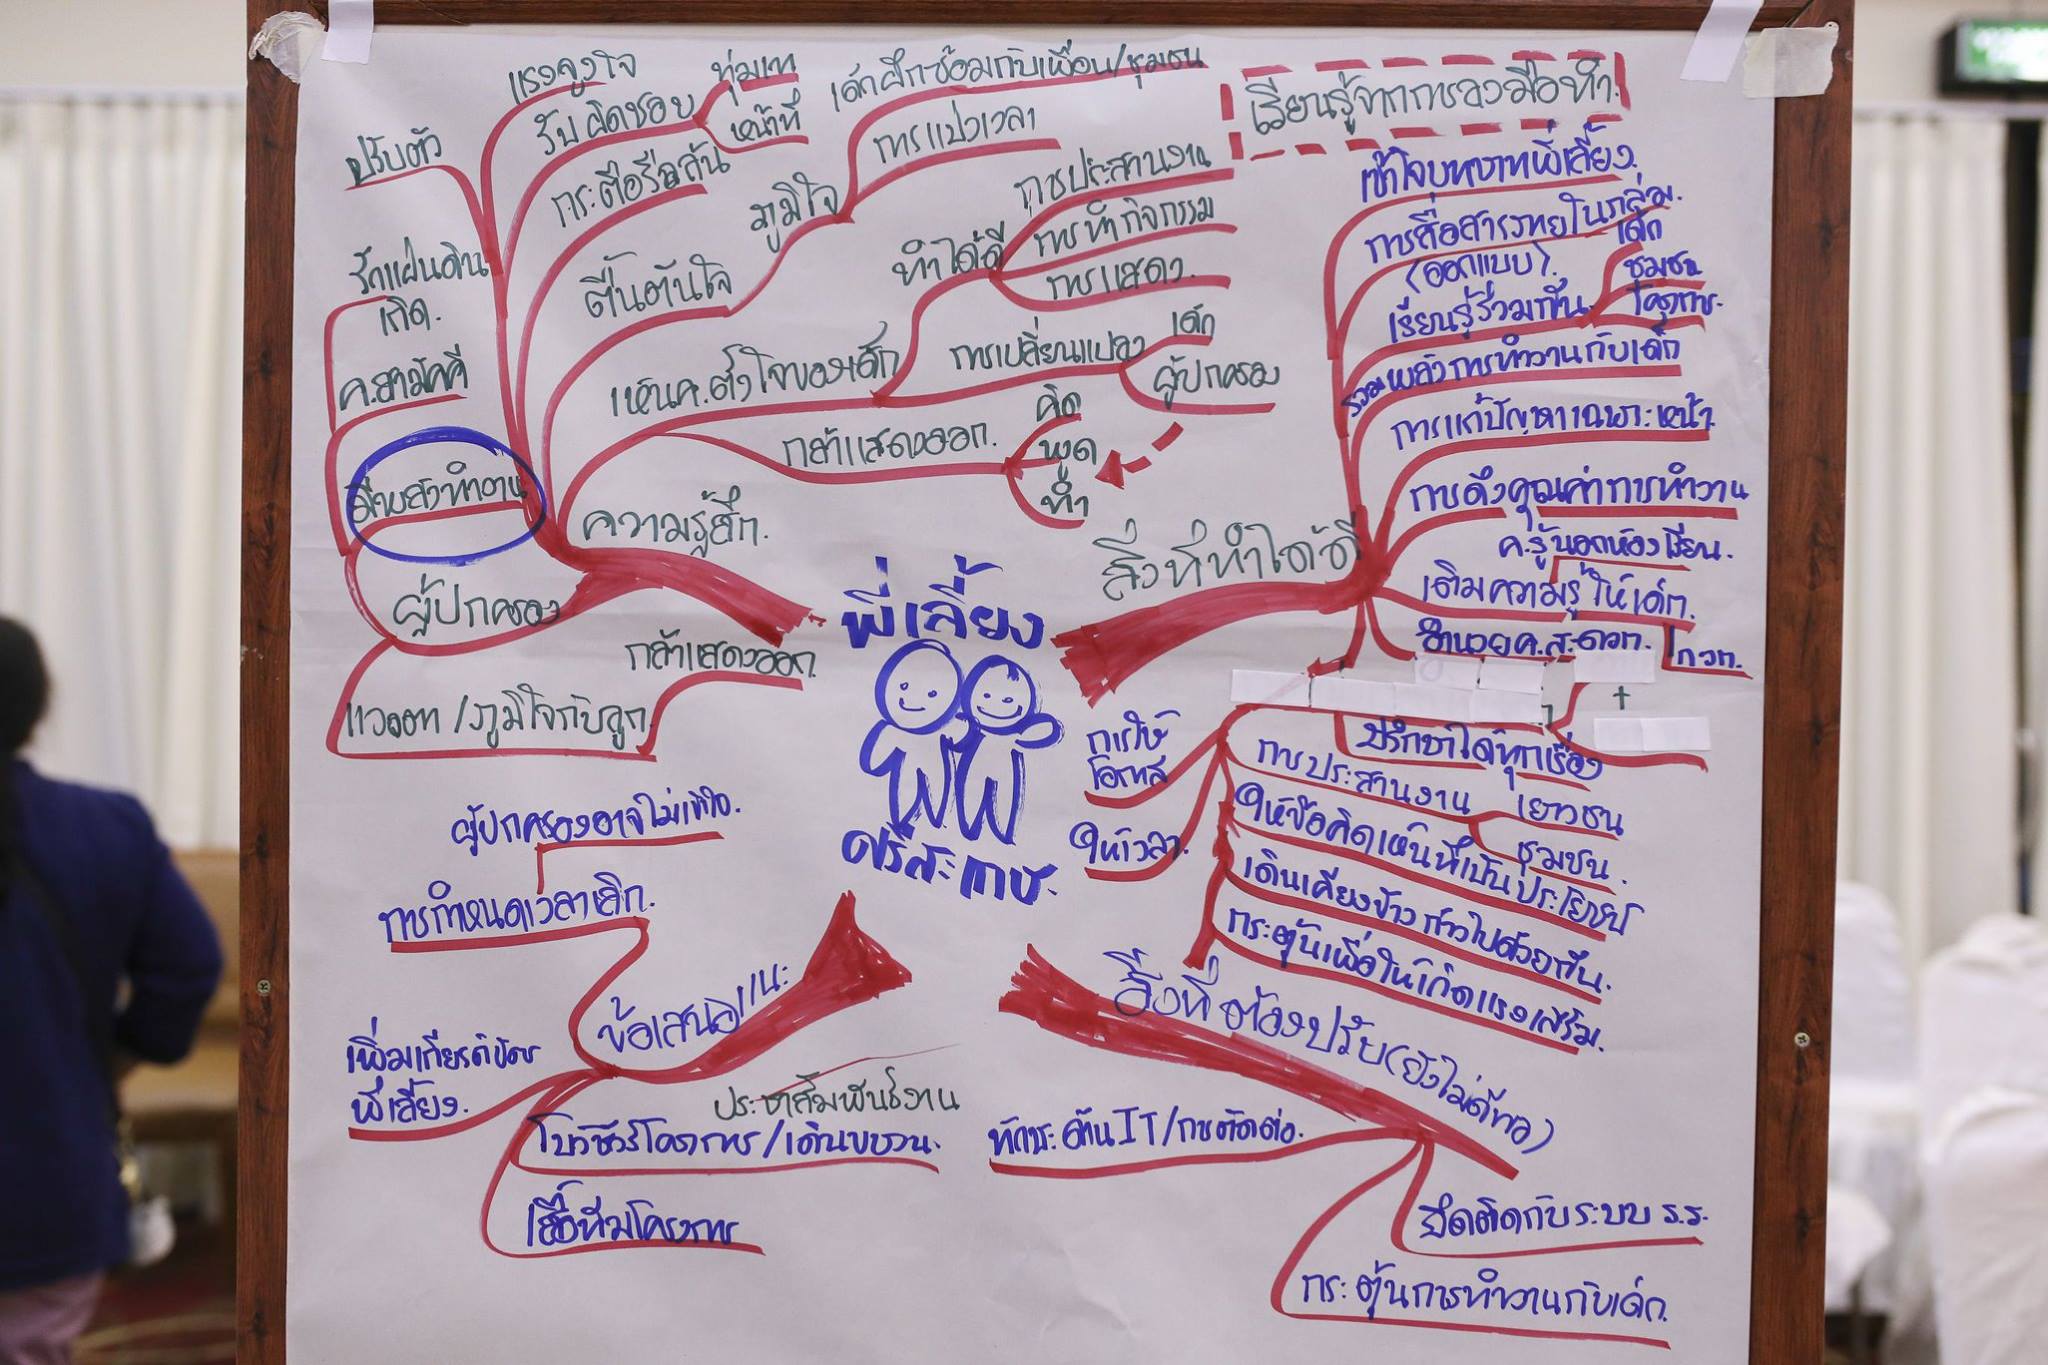 แรงจูงใจ
ปรับตัว
รับผิดชอบ
ทุ่มเท
หน้าที่
กระตือรือล้น
ตื่นต้นใจ
ภูมิใจ
เด็กฝึกซ้อมกับเพื่อน/ชุมชน
การแบ่งเวลา
เห็นค.ตั้งใจของเด็ก
ทำได้ดี
การประสานงาน
การทำกิจกรรม
การแสดง.
การเปลี่ยนแปลง
เด็ก
ผู้ปกครอง
กล้าแสดงออก.
คิด
พูด
ทำ
ความรู้สึก.
รักแผ่นดิน
เกิด.
ค.สามัคคี
ผู้ปกครอง
กล้าแสดงออก.
/ภูมิใจกับลูก.
พี่เลี้ยง
ศรีสะเกษ.
เรียนรู้จากการลงมือทำ.
สิ่งที่ทำได้ดี
เข้าใจบทบาทพี่เลี้ยง.
การสื่อสารภายในกลุ่ม.
(ออกแบบ).
เรียนรู้ร่วมกัน.
เด็ก
ชุมชน
โครงการ.
รวมพลังการทำงานกับเด็ก
การแก้ปัญหาเฉพาะหน้า.
การดึงคุณค่าการทำงาน
ค.รู้นอกห้องเรียน.
เติมความรู้ให้เด็ก.
อำนวยค.สะดวก.
+
ปรึกษาได้ทุกเรื่อง
การให้
โอกาส
ให้เวลา.
การประสานงาน
เยาวชน
ชุมชน.
ให้ข้อคิดเห็นที่เป็นประโยชน์
เดินเคียงข้างก้าวไปด้วยกัน.
กระตุ้นเพื่อให้เกิดแรงเสริม.
สิ่งที่ต้องปรับ(ยังไม่ดีพอ)
ทักษะด้านIT/การตัดต่อ.
ยึดติดกับระบบ ร.ร.
กระตุ้นการทำงานกับเด็ก.
ข้อเสนอแนะ
ผู้ปกครองอาจไม่เข้าใจ.
การกำหนดเวลาเลิก.
เพิ่มเกียรติบัตร
พี่เลี้ยง.
ประชาสัมพันธ์งาน
โบว์ชัวร์โครงการ/เดินขบวน.
เสื้อทีมโครงการ